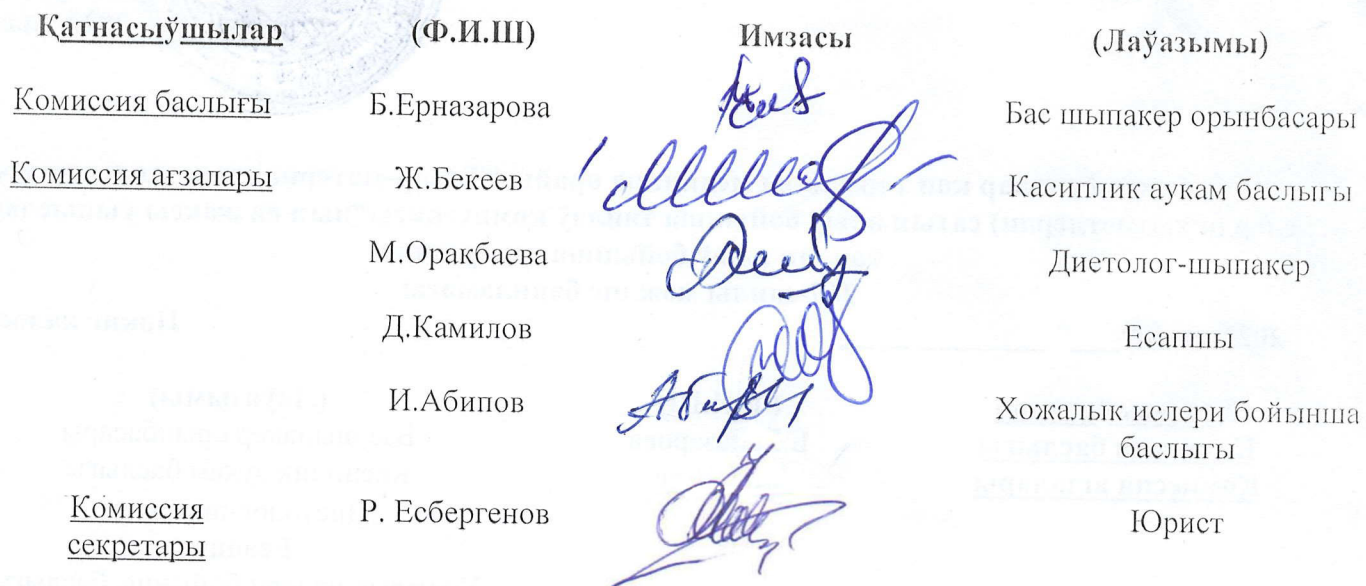 Қатнасыўшылар (Ф.И.Ш) Имзасы (Лаўазымы)
Комиссия баслығы Б.Ерназарова Бас шыпакер орынбасары
Комиссия ағзалары Ж.Бекеев Касиплик аукам баслыгы
М.Оракбаева Диетолог-шыпакер
Д.Камилов Есапшы
И.Абипов Хожалык ислери бойынша
баслыгы
Комиссия Р. Есбергенов Юрист
секретары